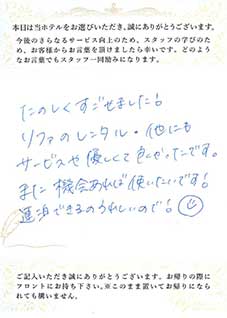 本日は当ホテルをお選びいただき、誠にありがとうございます。
今後のさらなるサービス向上のため、スタッフの学びのため、
お客様からお言葉を頂けましたら幸いです。どのような
お言葉でもスタッフ一同励みになります。
たのしくすごせました！
ソファのレンタル・他にも
サービスや優しくて良かったです。
また機会あれば使いたいです！
連泊できるのうれしいので！
ご記入いただき誠にありがとうございます。お帰りの際に
フロントにお持ち下さい。※このまま置いてお帰りになられ
ても構いません。